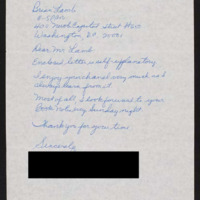 Brian Lamb
C-SPAN
400 North Capitol Street #650
Washington, D.C. 20001
Dear Mr. Lamb
Enclosed letter is self-explanatory
I enjoy your channel very much and
always learn from it.
Most of all, I look forward to your
Book notes every Sunday night
Thank you for your time
Sincerely